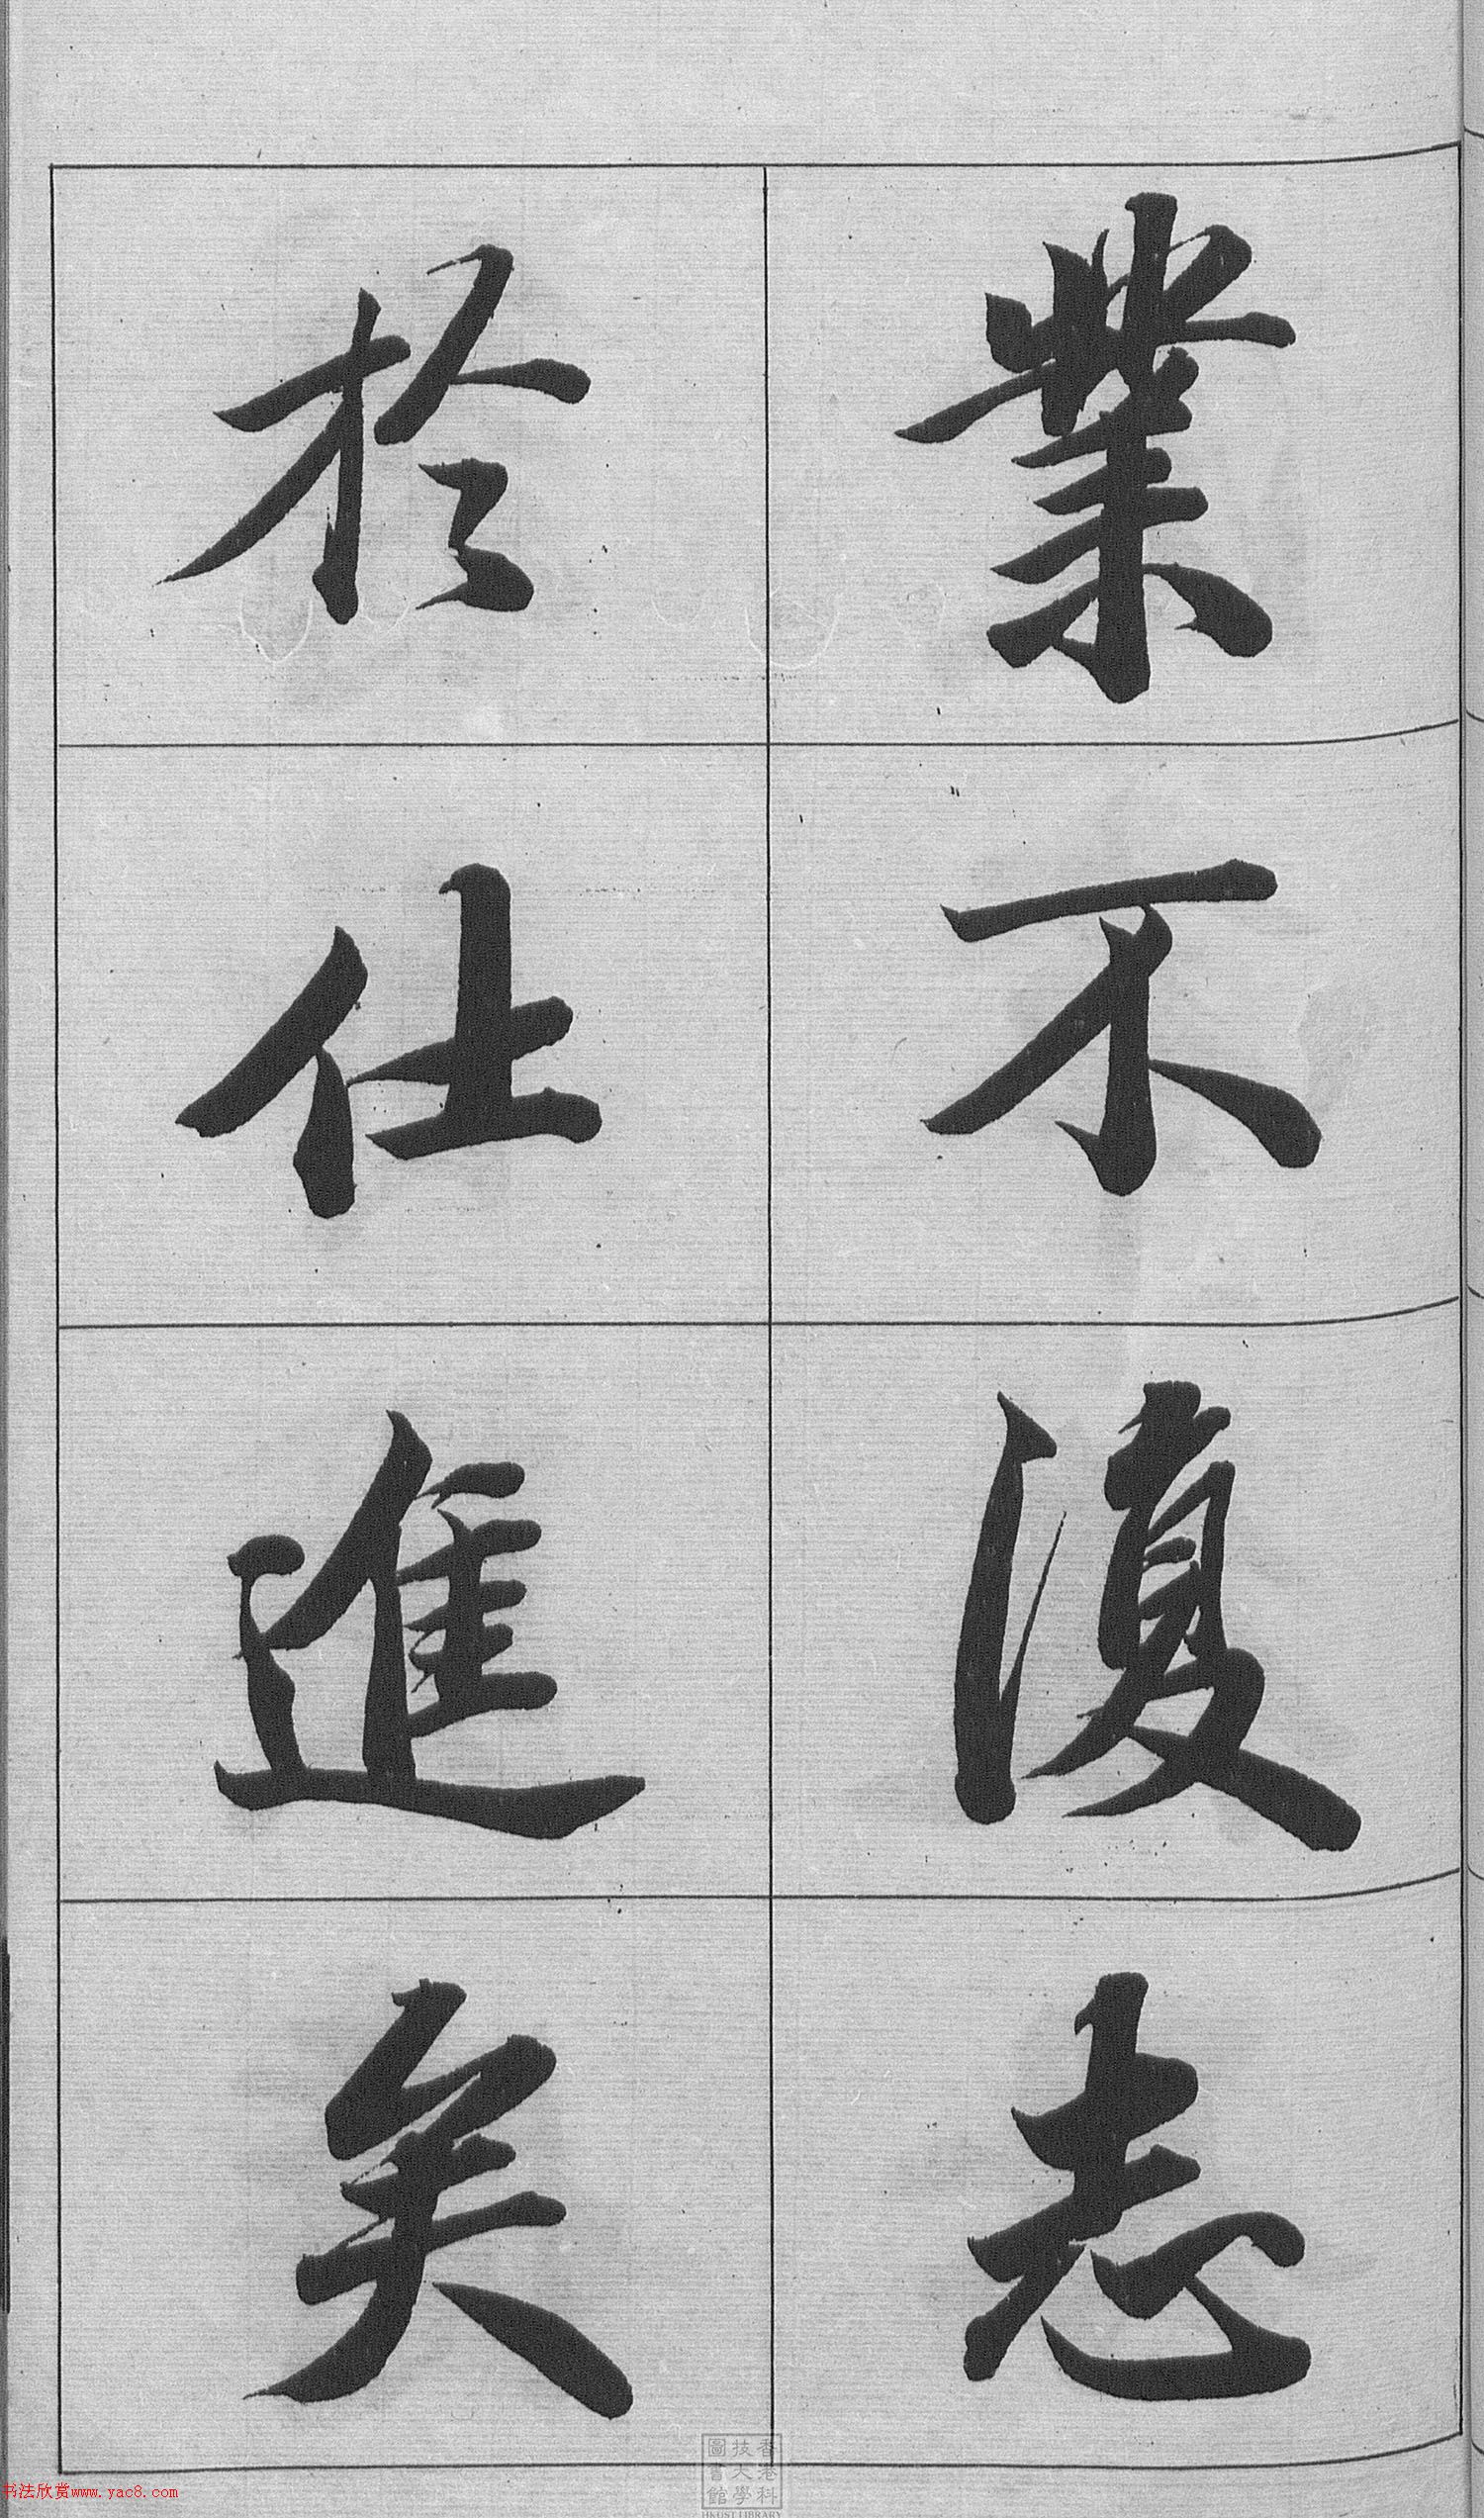 業不復志
於仕進矣
香港科
技大學
圖書館
HKUST LIBRARY
书法欣赏www.yac8.com